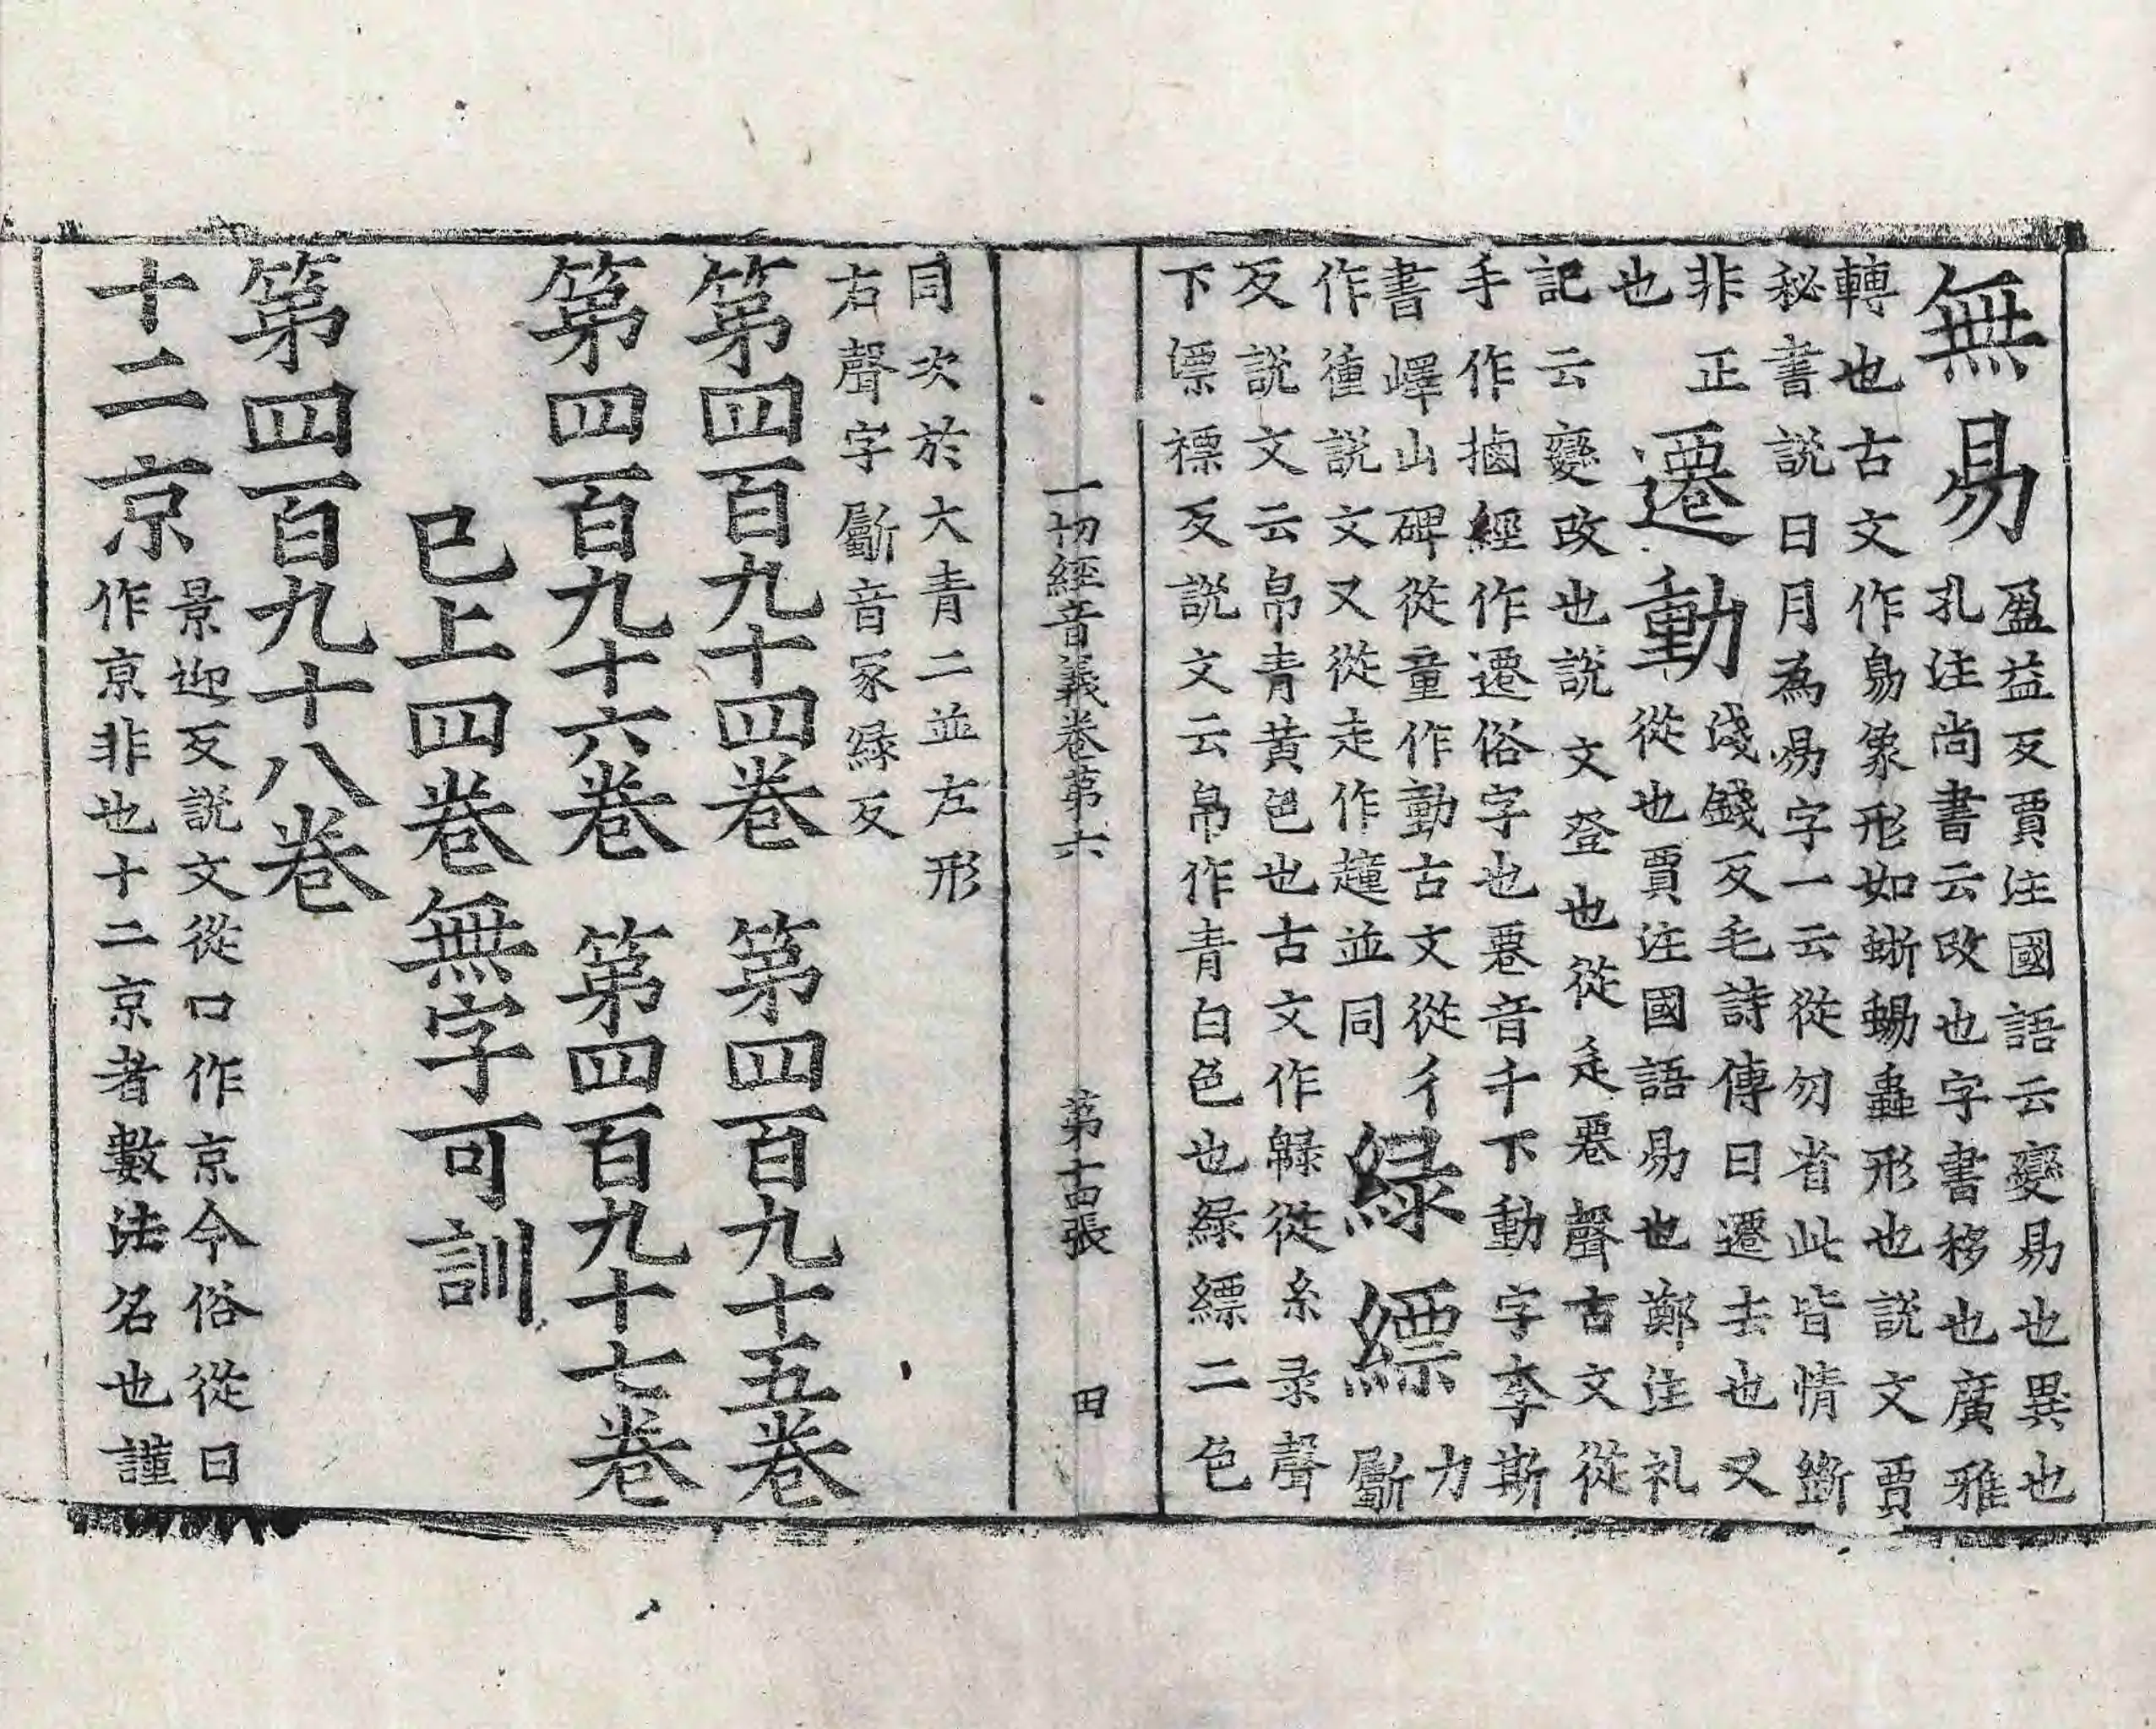 無易
盈益反賈注國語云變易也異也
孔注尚書云改也字書移也廣雅
轉也古文作易象形如蜥蜴蟲形也說文賈
秘書說日月為易字一云從勿省此皆情斷
非正
也
遷動
淺錢反毛詩傳曰遷去也又
從也賈注國語易也鄭注礼
記云變改也說文登也從辵䙴聲古文從
手作𢮄經作遷俗字也䙴音千下動字李斯
書嶧山碑從童作動古文從彳
作㣫說文又從走作䞳並同
緑縹
力
斸
反說文云帛青黄色也古文作從糸录聲
下漂褾反說文云帛作青白色也緑縹二色
一切經音義卷第六 第十四張 田
同次於大青二並左形
右聲字斸音冢緑反
第四百九十四卷 第四百九十五卷
第四百九十六卷 第四百九十七卷
已上四卷無字可訓
第四百九十八卷
十二京
景迎反說文從口作京今俗從日
作亰非也十二京者數法名也謹